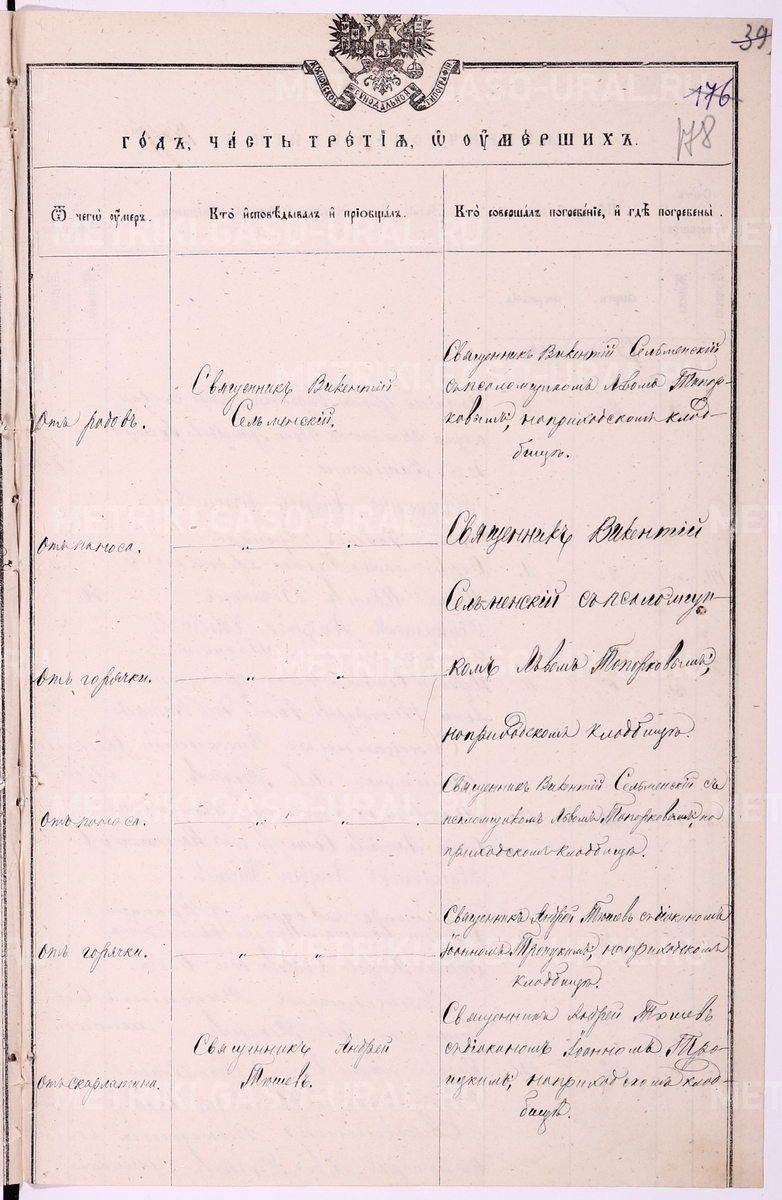 39
176
178
МОСКОВСКОЙ СѴНОДАЛЬНОЙ ТИПОГРАФІИ
METRIKI.GASO-URAL.RU
ГОДЪ, ЧАСТЬ ТРЕТІѦ, Ѿ ОУМЕРШИХЪ.
Ѿ чегѡ оумеръ.
Кто исповѣдывалъ и пріобщалъ.
Кто совершалъ погребеніе, и гдѣ погребены.
отъ родовъ.
Священникъ Викентій
Сельменскій.
Священникъ Викентій Сельменскій
съ псаломщикомъ Львомъ Топор-
ковымъ, на приходскомъ клад-
бищѣ.
отъ поноса.
„ „
Священникъ Викентій
Сельменскій съ псаломщи-
комъ Львомъ Топорковымъ,
на приходскомъ кладбищѣ.
отъ горячки.
„ „
отъ поноса.
„ „
Священникъ Викентій Сельменскій съ
псаломщикомъ Львомъ Топорковымъ, на
приходскомъ кладбищѣ.
отъ горячки.
„ „
Священникъ Андрей Тюшевъ съ діакономъ
Іоанномъ, на приходскомъ
кладбищѣ.
отъ скарлатина.
Священникъ Андрей
Тюшевъ.
Священникъ Андрей Тюшевъ
съ діакономъ Іоанномъ
на приходскомъ клад-
бищѣ.